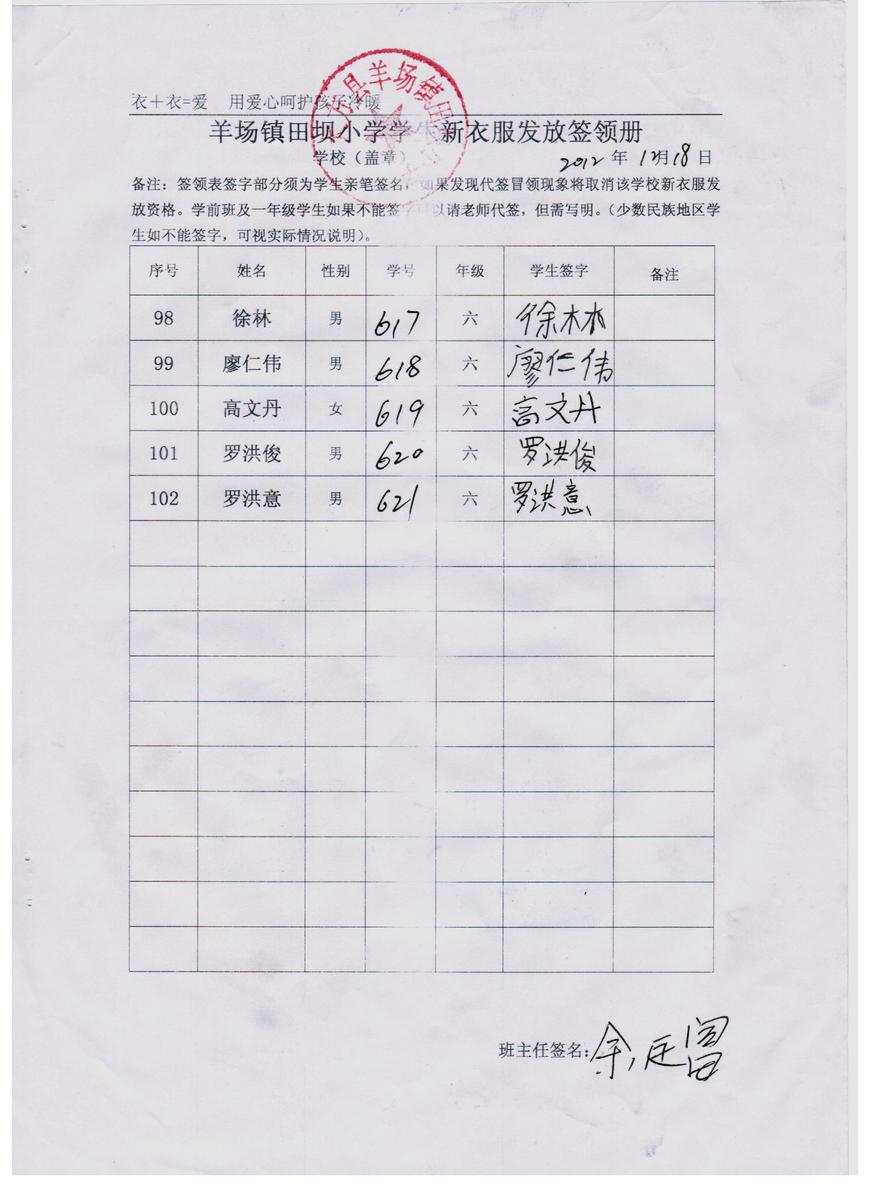 衣＋衣=爱 用爱心呵护孩子冷暖
羊场镇田坝小学学生新衣服发放签领册
学校（盖章）
2012 年 12月 18 日
备注：签领表签字部分须为学生亲笔签名，如果发现代签冒领现象将取消该学校新衣服发
放资格。学前班及一年级学生如果不能签字可以请老师代签，但需写明。（少数民族地区学
生如不能签字，可视实际情况说明）。
序号 姓名 性别 学号 年级 学生签字 备注
98 徐林 男 617 六 徐林
99 廖仁伟 男 618 六 廖仁伟
100 高文丹 女 619 六 高文丹
101 罗洪俊 男 620 六 罗洪俊
102 罗洪意 男 621 六 罗洪意
班主任签名：